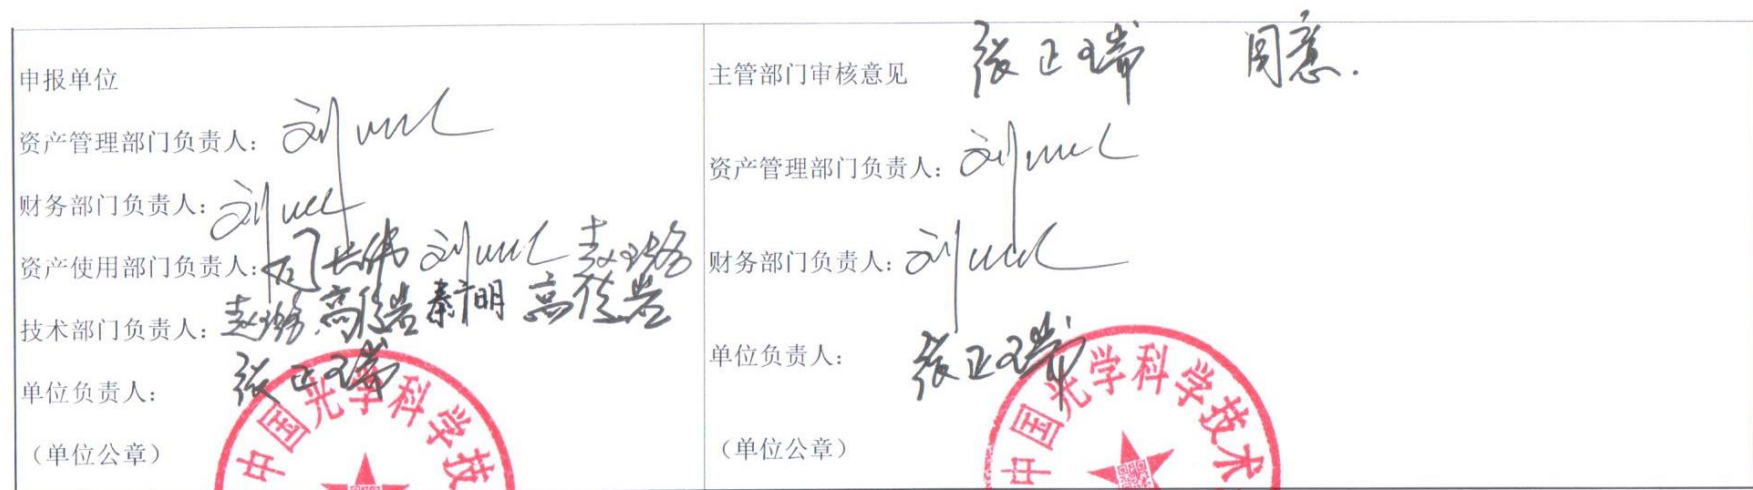 申报单位
资产管理部门负责人: 刘
财务部门负责人: 刘
资产使用部门负责人: 刘
技术部门负责人: 秦广明
单位负责人: 张正瑞
(单位公章)
中国光学科学技
主管部门审核意见 张正瑞 同意.
资产管理部门负责人: 刘
财务部门负责人: 刘
单位负责人: 张正瑞
(单位公章)
中国光学科学技术